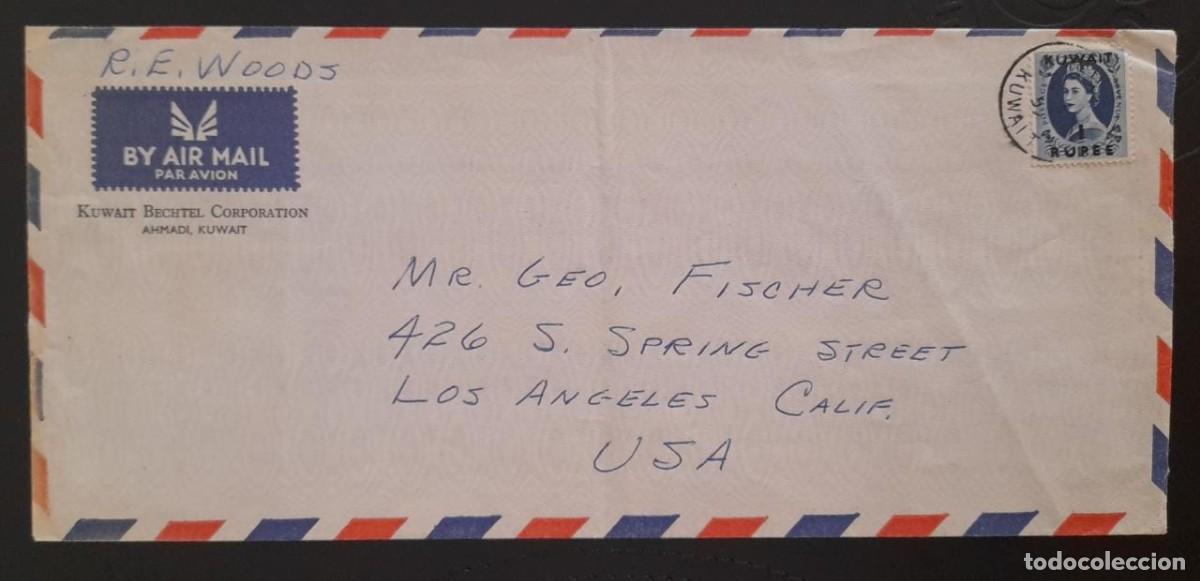 R.E. WOODS
BY AIR MAIL
PAR AVION
KUWAIT BECHTEL CORPORATION
AHMADI, KUWAIT
KUWAIT
KUWAIT
1
RUPEE
MR. GEO, FISCHER
426 S. SPRING STREET
LOS ANGELES CALIF.
USA
todocoleccion